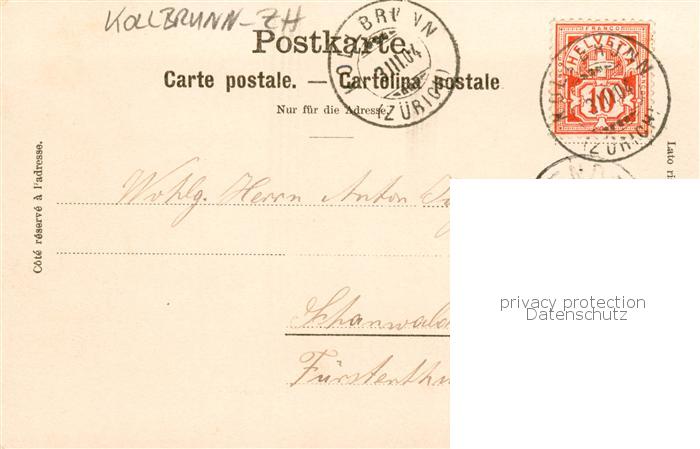 KOLLBRUNN-ZH
KOLLBRUNN
3.III.04
(ZÜRICH)
FRANCO
HELVETIA
10
KOLLBRUNN
3.III.04
(ZÜRICH)
Postkarte.
Carte postale. — Cartolina postale
Nur für die Adresse.
Côté réservé à l'adresse.
Lato ri
Wohlg. Herrn Anton
Schanwald
Fürstenthu
privacy protection
Datenschutz